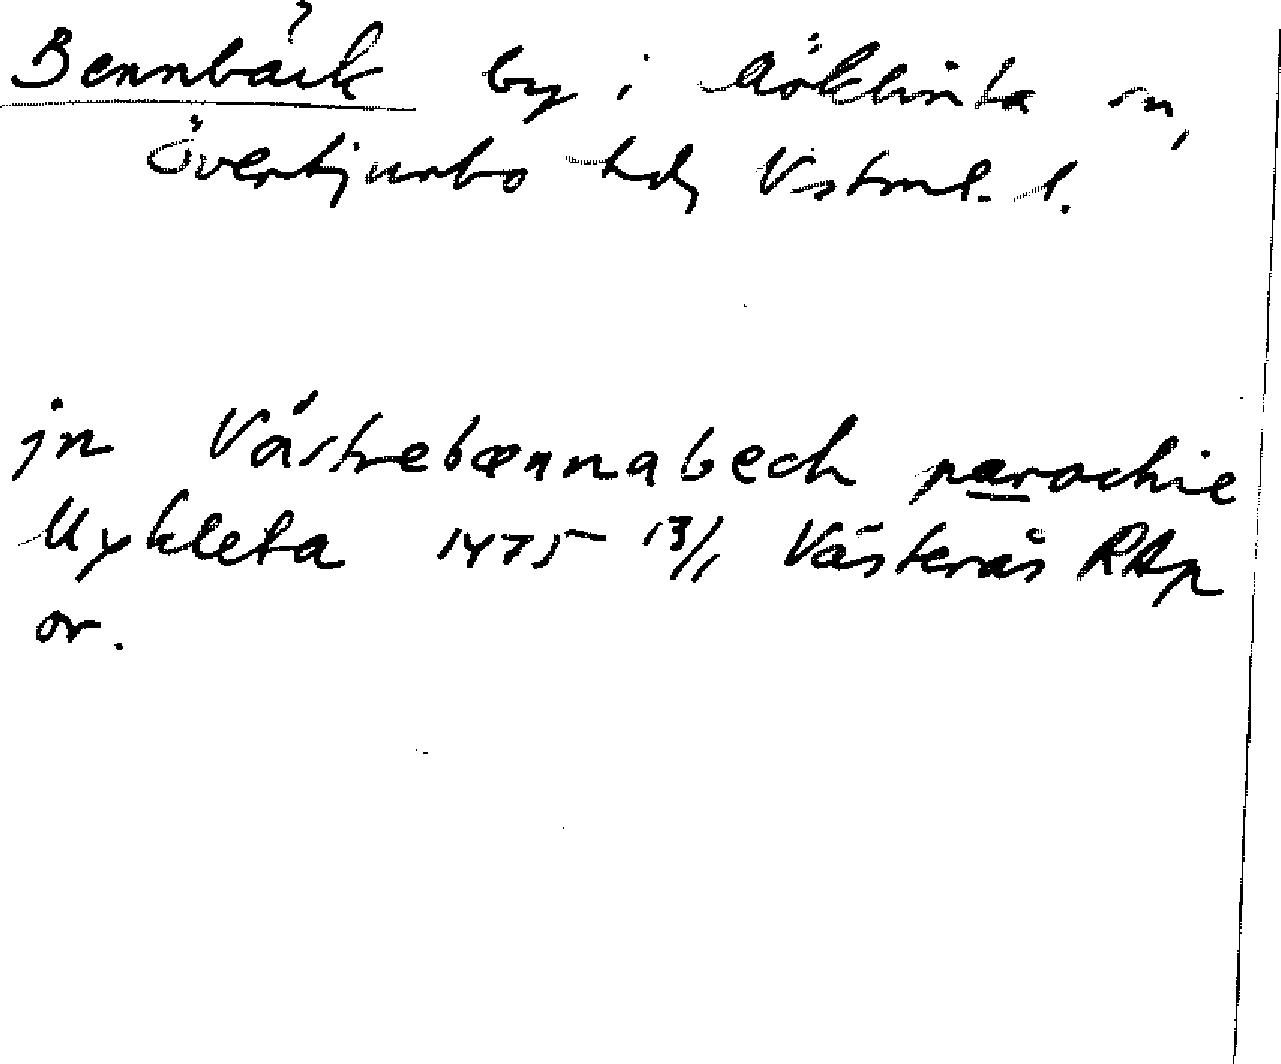 Bennbäck by i Möklinta sn,
Övertjurbo hd, Vstml. l.
in Västrebænnabech parochie
Mykleta 1475 13/1 Västerås RAp
or.